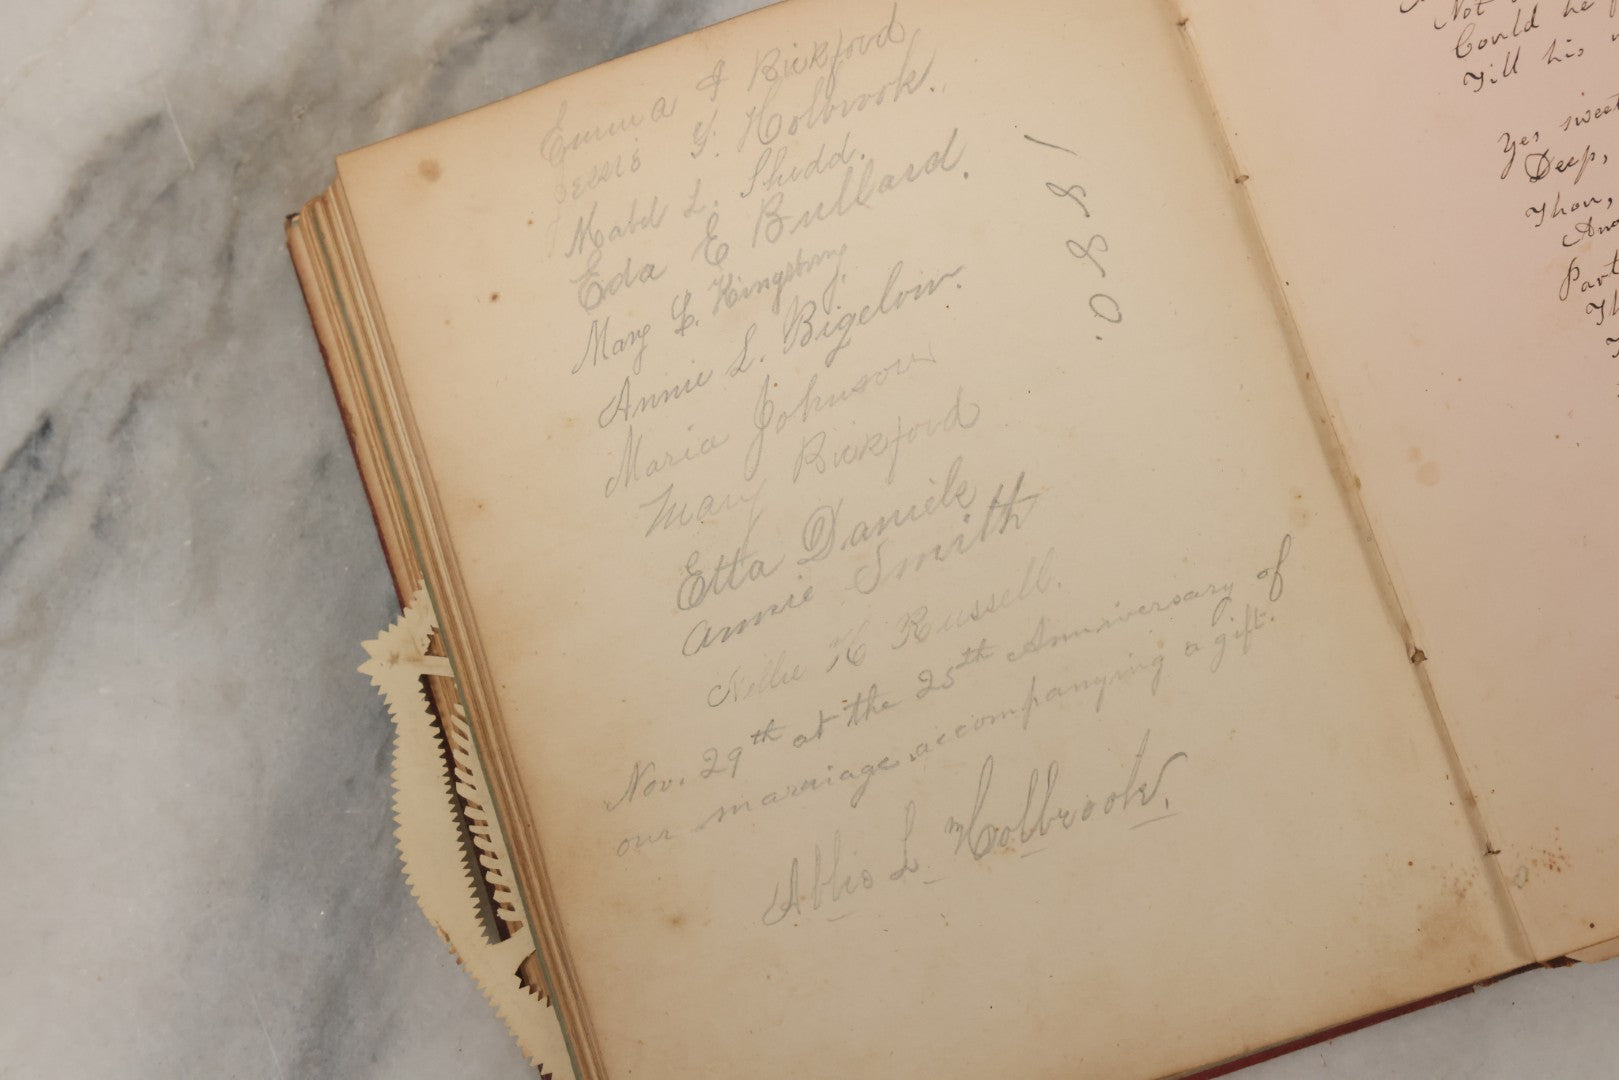 Emma J Bickford,
G. Holbrook.
Mabel L. Shedd.
Eda E Bullard.
Mary E. Kingsbury.
Annie L. Bigelow.
Maria Johnson
Mary Bickford
Etta Daniels
Annie Smith
Nellie K Russell.
Nov. 29th at the 25th Anniversary of
our marriage accompanying a gift.
Abbie L Holbrook.
1880.
Not
Could he
Till his
Yes sweet
Deep,
Thou,
And
Part